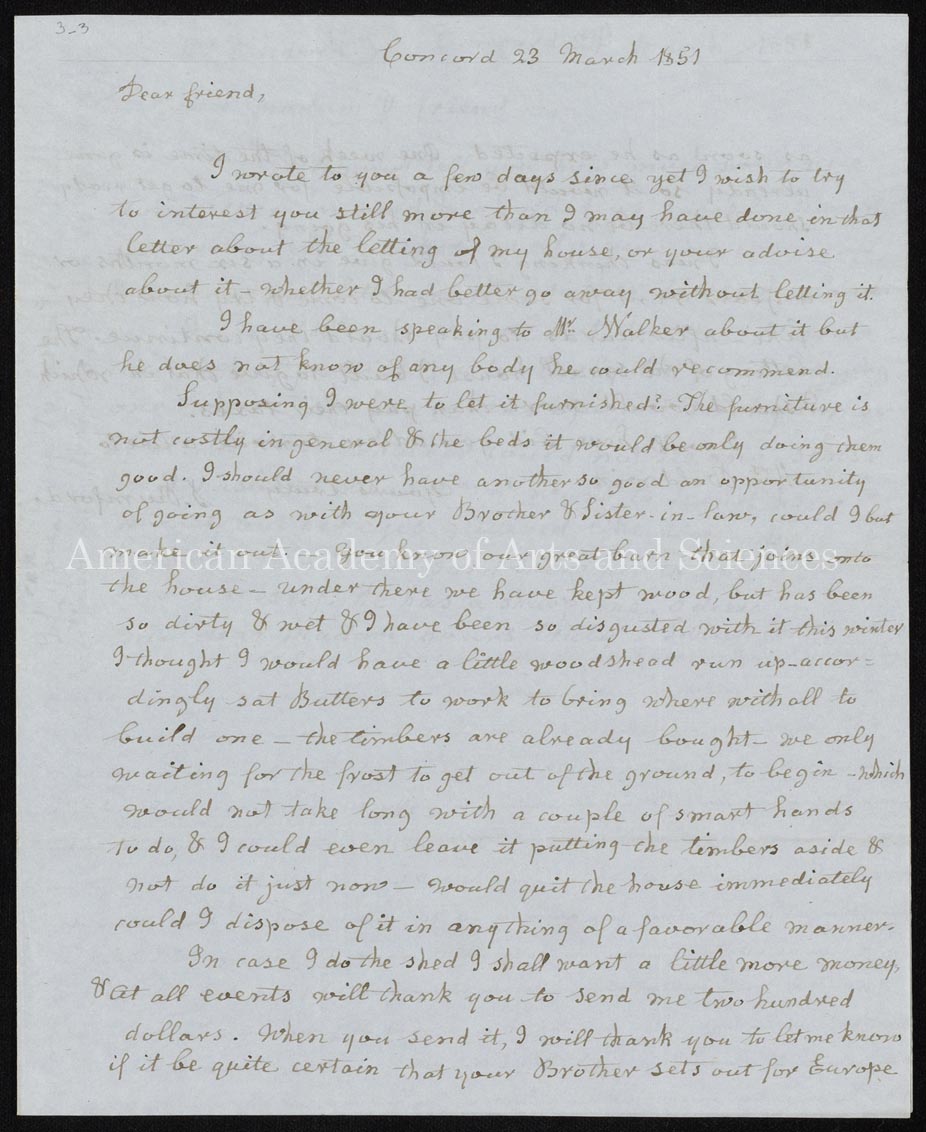 3-3
Concord 23 March 1851
Dear friend,
I wrote to you a few days since yet I wish to try
to interest you still more than I may have done in that
letter about the letting of my house, or your advise
about it - whether I had better go away without letting it.
I have been speaking to Mr. Walker about it but
he does not know of any body he could recommend.
Supposing I were to let it furnished? The furniture is
not costly in general & the beds it would be only doing them
good. I should never have another so good an opportunity
of going as with your Brother & Sister-in-law, could I but
make it out. You know our great barn that joins onto
American Academy of Arts and Sciences
the house - under there we have kept wood, but has been
so dirty & wet & I have been so disgusted with it this winter
I thought I would have a little woodshead run up - accor=
dingly sat Butters to work to bring where withall to
build one - the timbers are already bought - we only
waiting for the frost to get out of the ground, to begin - which
would not take long with a couple of smart hands
to do, & I could even leave it putting the timbers aside &
not do it just now - would quit the house immediately
could I dispose of it in anything of a favorable manner.
In case I do the shed I shall want a little more money,
& at all events will thank you to send me two hundred
dollars. When you send it, I will thank you to let me know
if it be quite certain that your Brother sets out for Europe